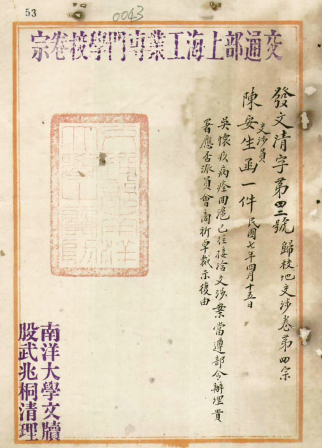 53
0043
交通部上海工業專門學校卷宗
發文清字第四二號 歸校地交涉卷第四宗
交涉員
陳安生函一件 民國七年四月十五日
吳懷疚病痊回滬已往接洽交涉案當遵部令辦理貴
署應否派員會商祈卓裁示復由
南洋大學文牘
股武兆桐清理